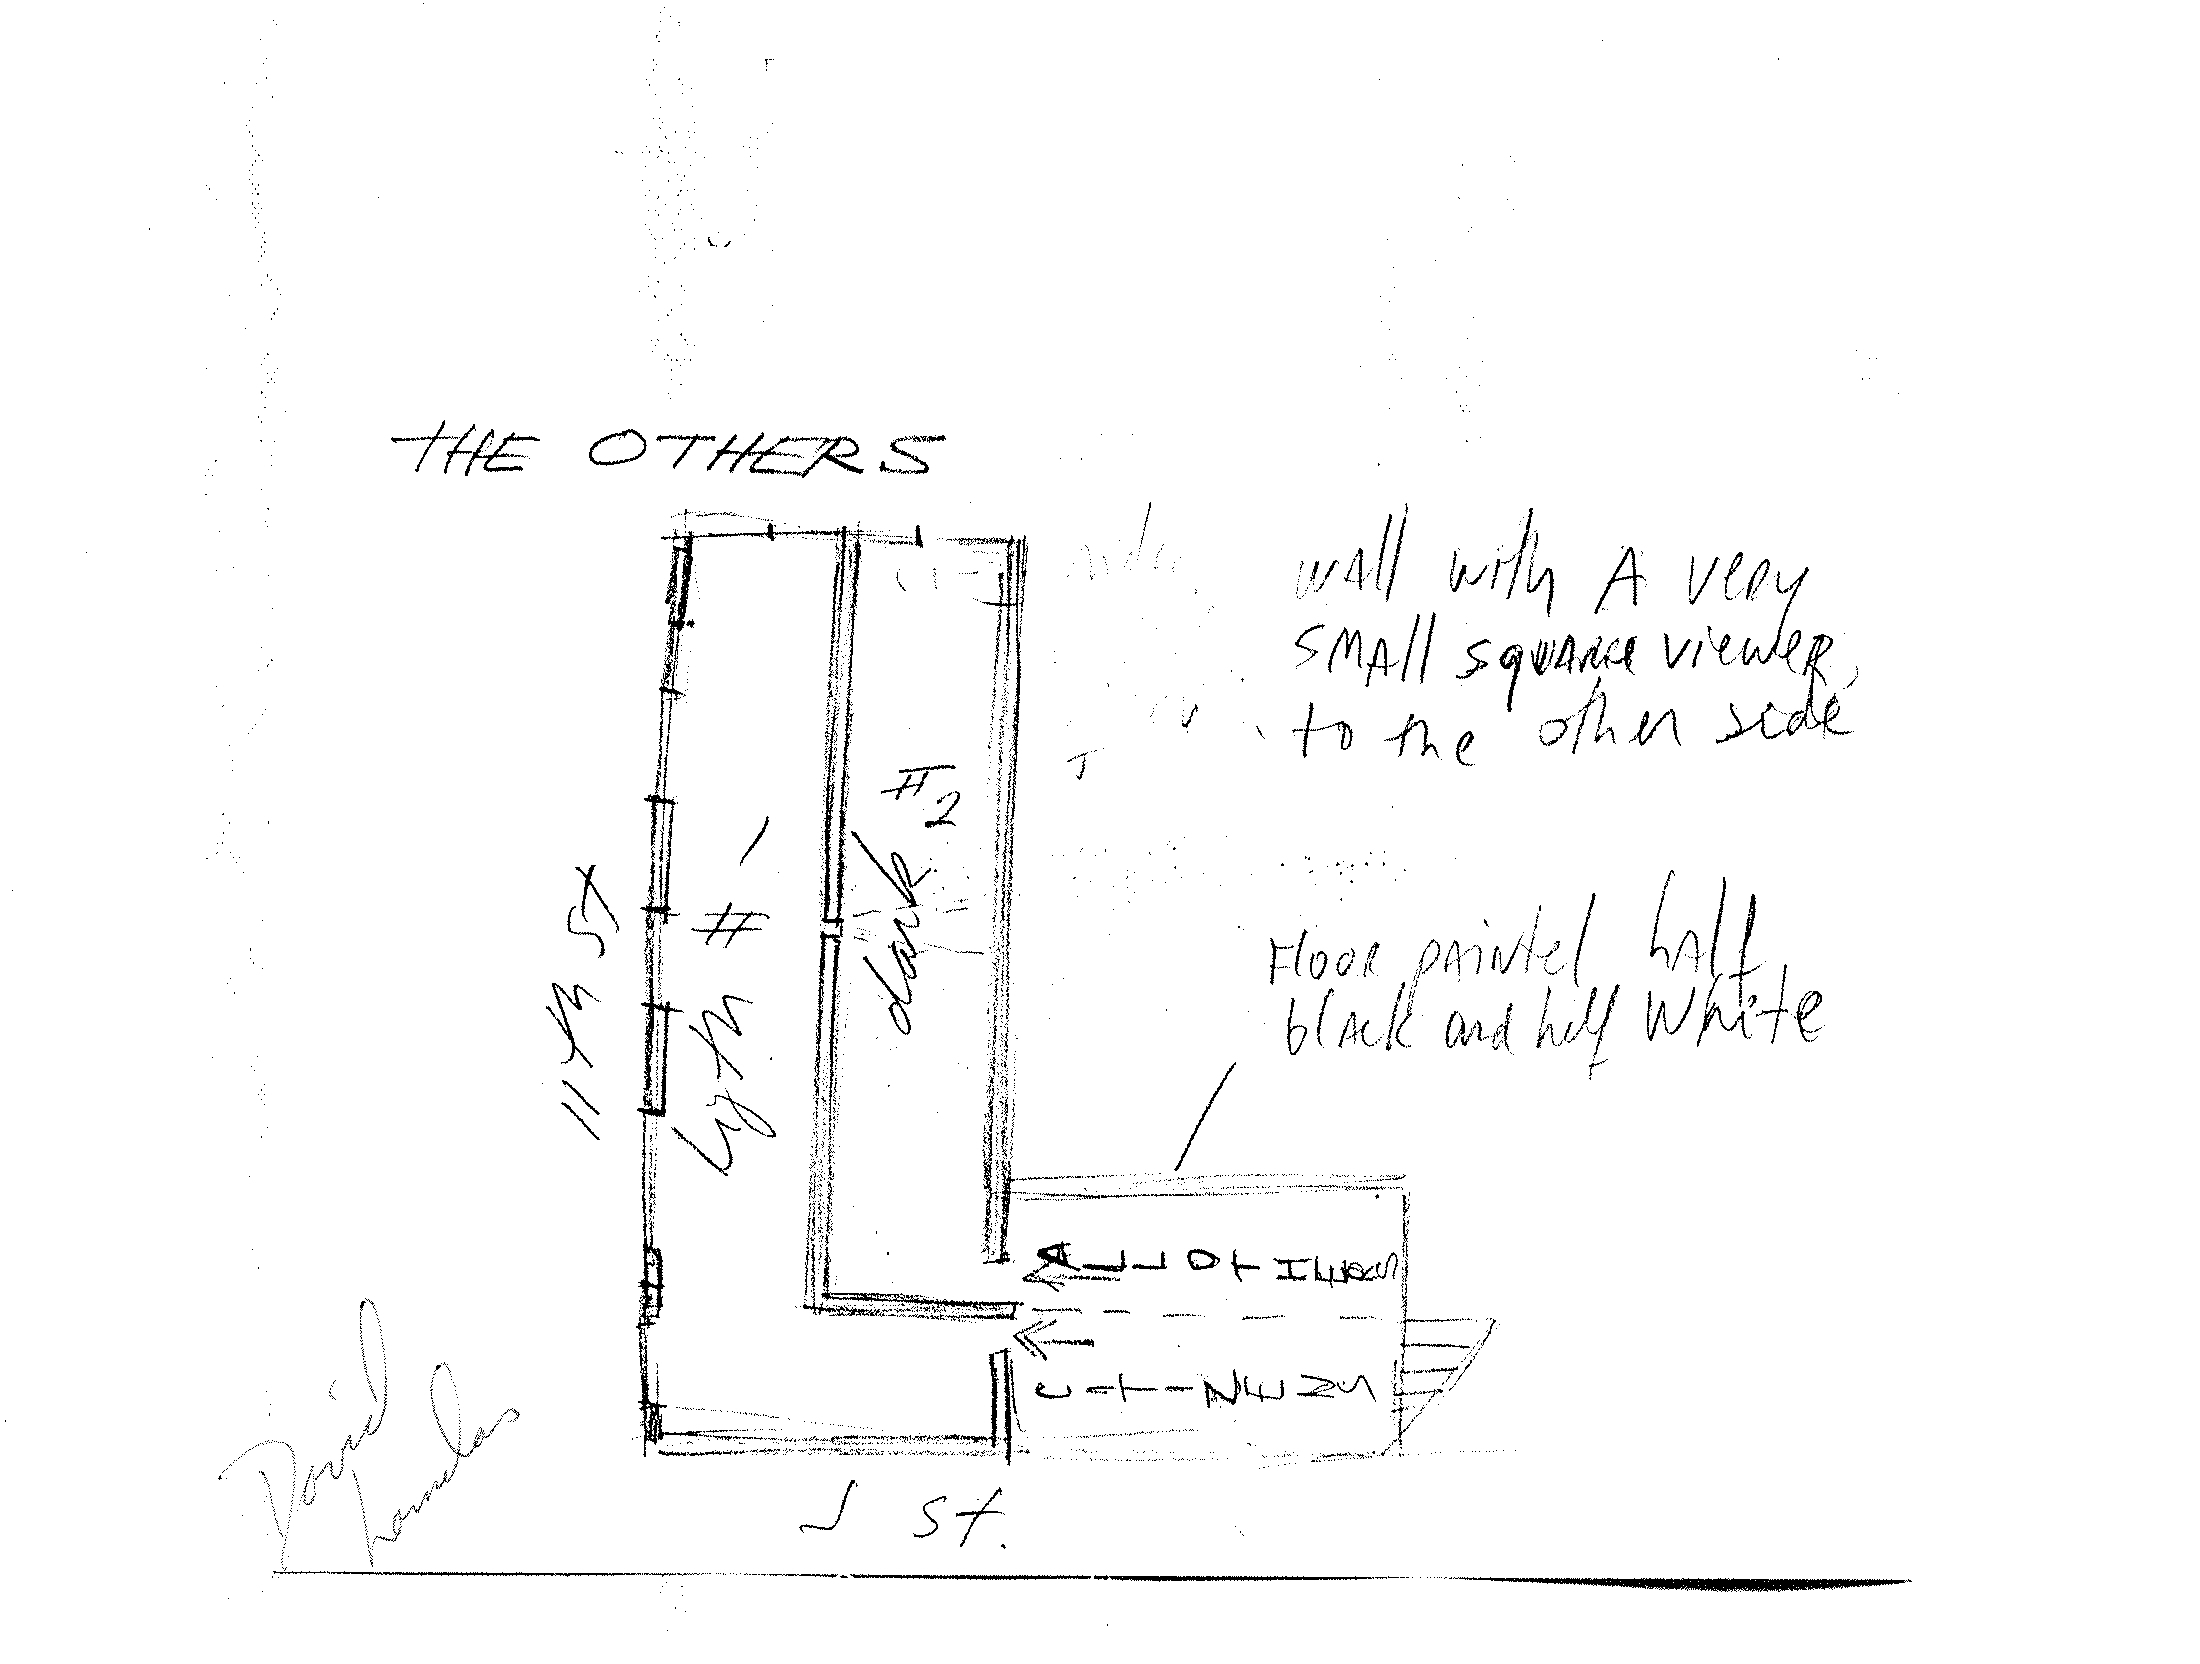 THE OTHERS
wall with A very
small square viewer
to the other side
#2
dark
Ligth # 1
11th St
Floor painted half
black and half White
ALL OTHERS
CITIZENS
J St.
David
Lamelas